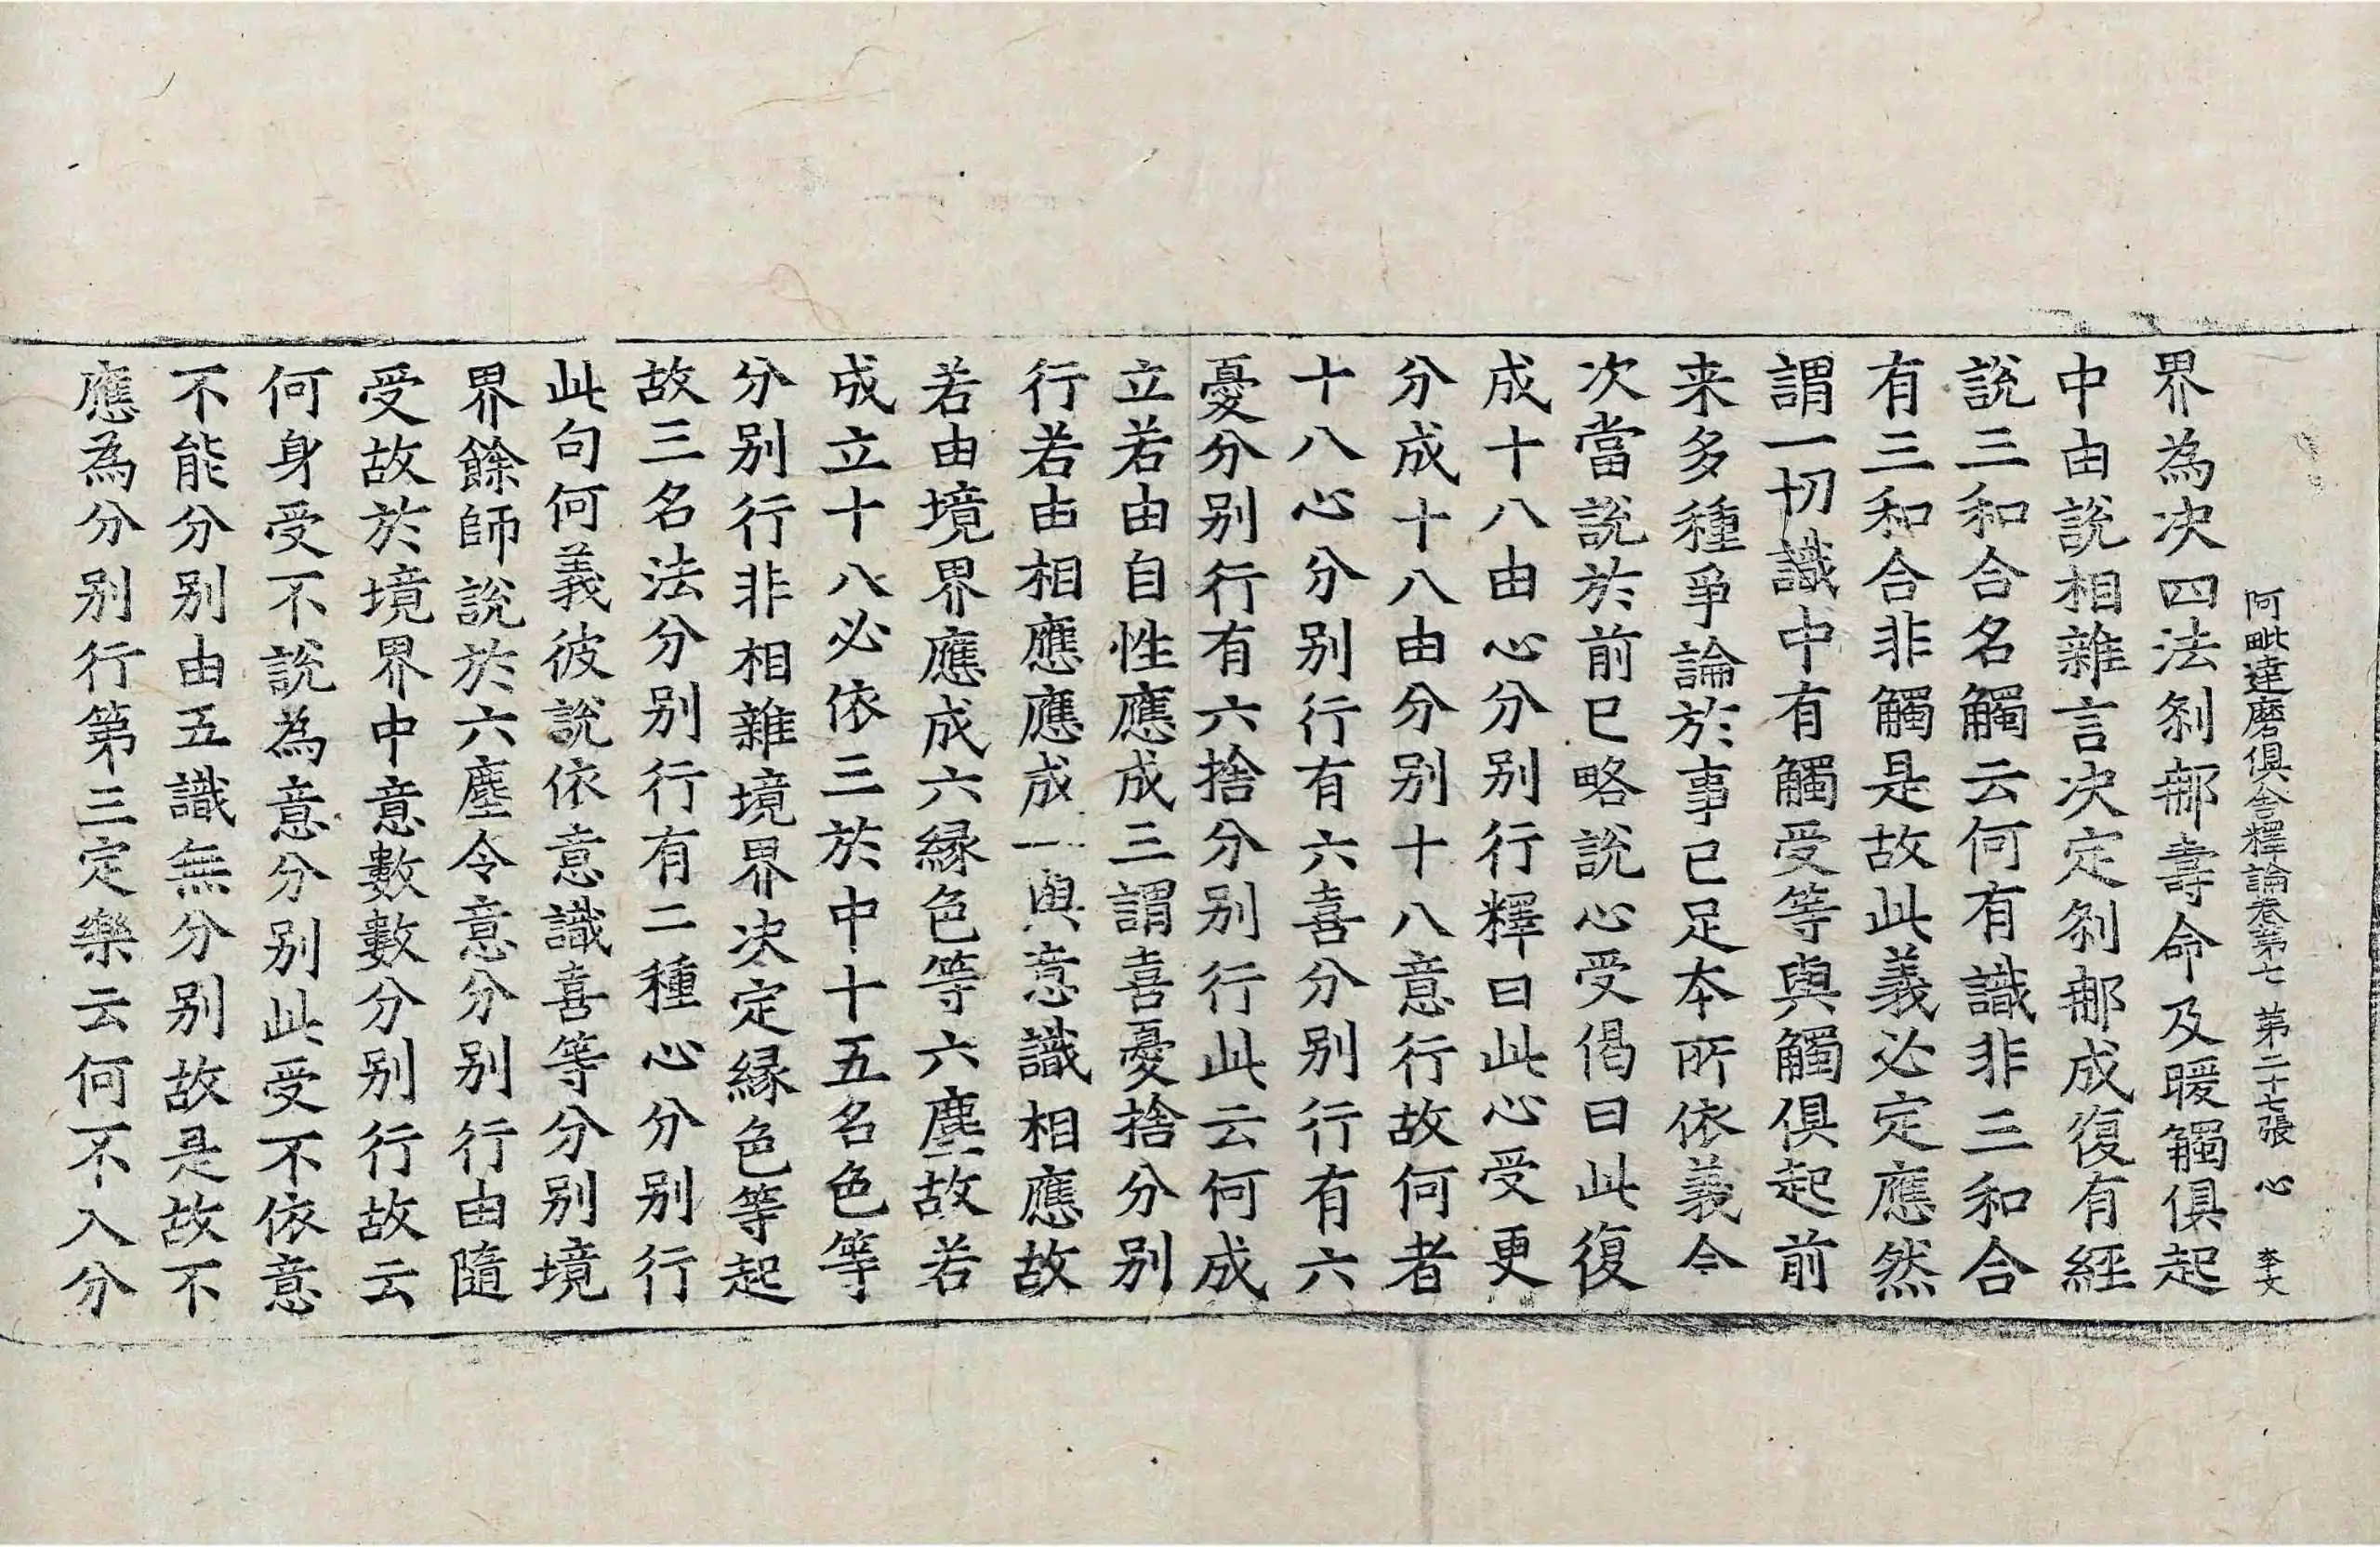 阿毗達磨俱舍釋論卷第七 第二十七張 心 李文
界為決四法刹郍壽命及暖觸俱起
中由說相雜言決定刹郍成復有經
說三和合名觸云何有識非三和合
有三和合非觸是故此義必定應然
謂一切識中有觸受等與觸俱起前
来多種爭論於事已足本所依義今
次當說於前已略說心受偈曰此復
成十八由心分別行釋曰此心受更
分成十八由分別十八意行故何者
十八心分別行有六喜分別行有六
憂分別行有六捨分別行此云何成
立若由自性應成三謂喜憂捨分別
行若由相應應成一與意識相應故
若由境界應成六縁色等六塵故若
成立十八必依三於中十五名色等
分別行非相雜境界決定縁色等起
故三名法分別行有二種心分別行
此句何義彼說依意識喜等分別境
界餘師說於六塵令意分別行由隨
受故於境界中意數數分別行故云
何身受不說為意分別此受不依意
不能分別由五識無分別故是故不
應為分別行第三定樂云何不入分